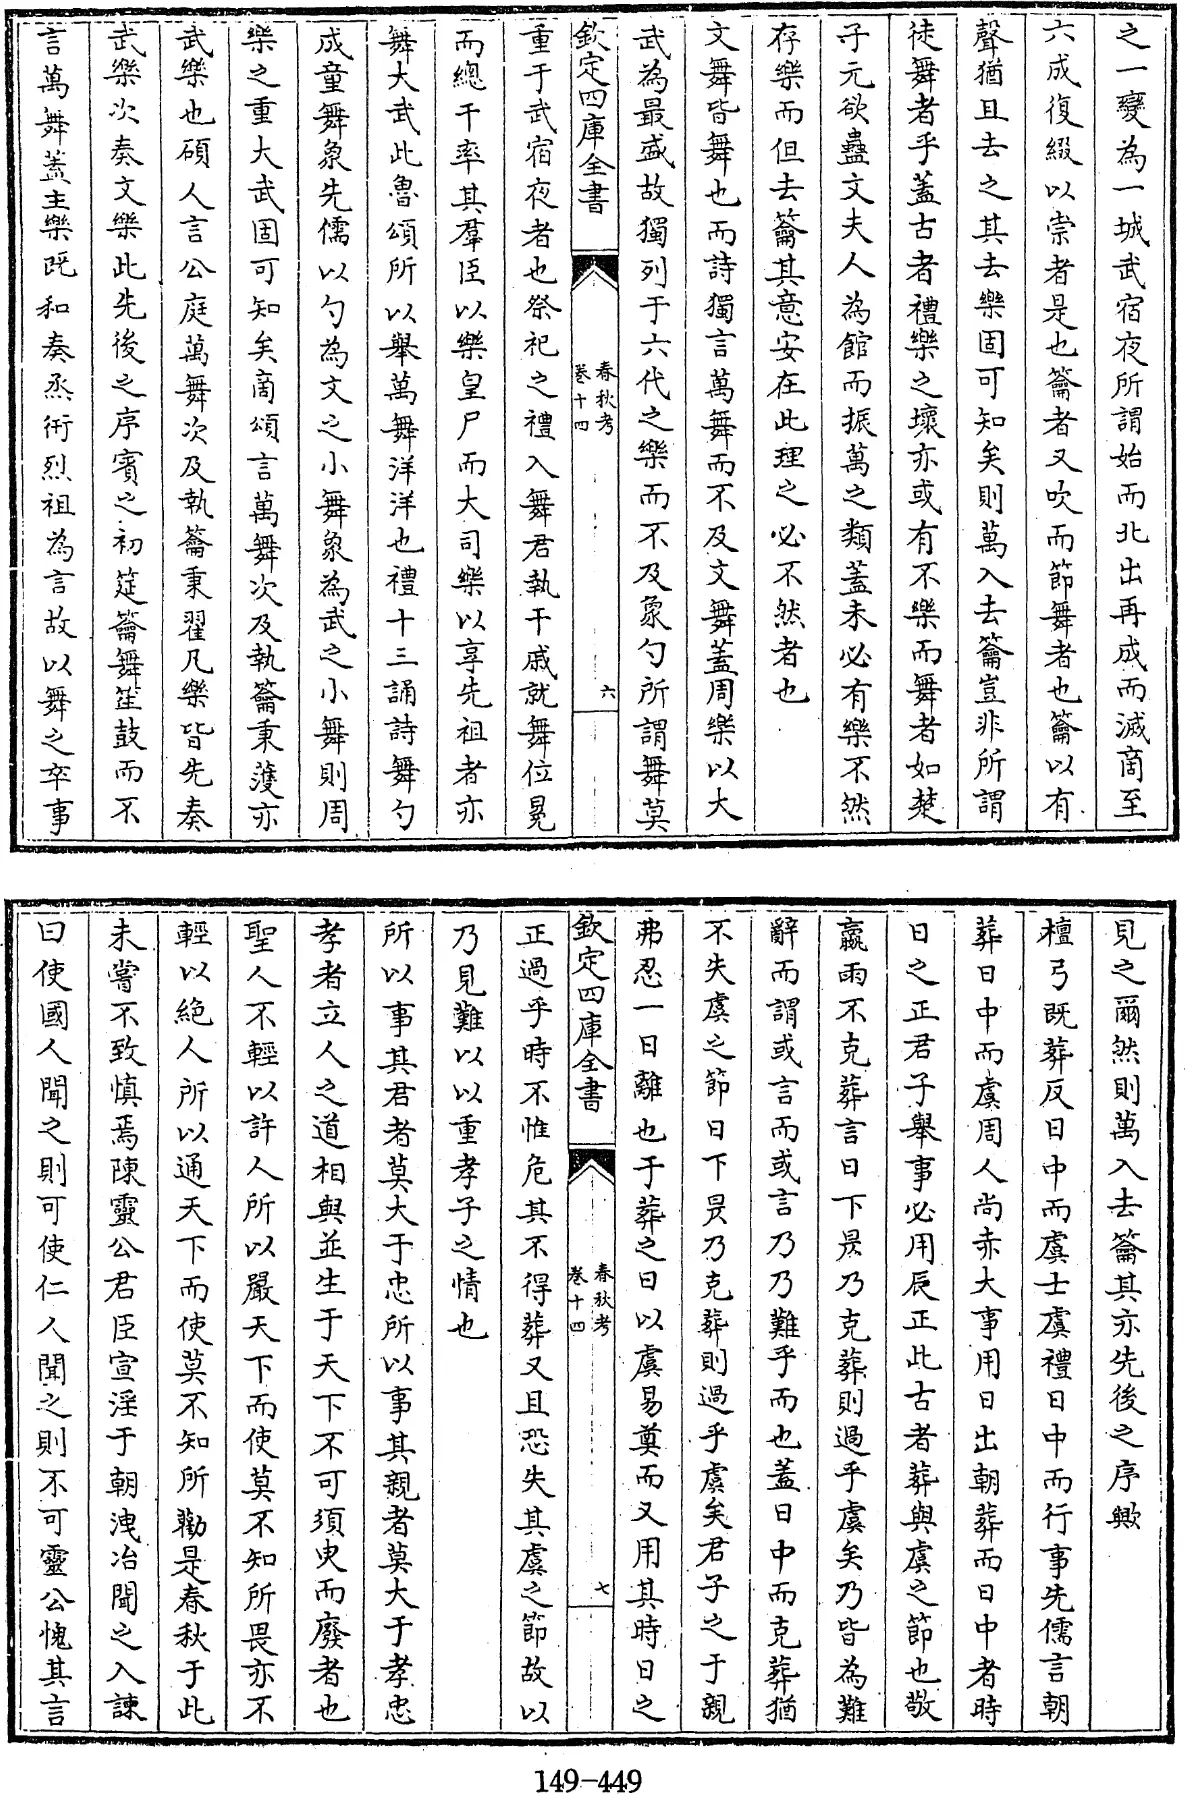 之一變為一城武宿夜所謂始而北出再成而滅商至
六成復綴以崇者是也籥者又吹而節舞者也籥以有
聲猶且去之其去樂固可知矣則萬入去籥豈非所謂
徒舞者乎蓋古者禮樂之壞亦或有不樂而舞者如楚
子元欲蠱文夫人為館而振萬之類蓋未必有樂不然
存樂而但去籥其意安在此理之必不然者也
文舞皆舞也而詩獨言萬舞而不及文舞蓋周樂以大
武為最盛故獨列于六代之樂而不及象勺所謂舞莫
欽定四庫全書
春秋考
卷十四
六
重于武宿夜者也祭祀之禮入舞君執干戚就舞位冕
而總干率其羣臣以樂皇尸而大司樂以享先祖者亦
舞大武此魯頌所以舉萬舞洋洋也禮十三誦詩舞勺
成童舞象先儒以勺為文之小舞象為武之小舞則周
樂之重大武固可知矣商頌言萬舞次及執籥秉蒦亦
武樂也碩人言公庭萬舞次及執籥秉翟凡樂皆先奏
武樂次奏文樂此先後之序賓之初筵籥舞笙鼓而不
言萬舞蓋主樂既和奏烝衎烈祖為言故以舞之卒事
見之爾然則萬入去籥其亦先後之序歟
檀弓既葬反日中而虞士虞禮日中而行事先儒言朝
葬日中而虞周人尚赤大事用日出朝葬而日中者時
日之正君子舉事必用辰正此古者葬與虞之節也敬
嬴雨不克葬言日下昃乃克葬則過乎虞矣乃皆為難
辭而謂或言而或言乃乃難乎而也蓋日中而克葬猶
不失虞之節日下昃乃克葬則過乎虞矣君子之于親
弗忍一日離也于葬之日以虞易奠而又用其時日之
欽定四庫全書
春秋考
卷十四
七
正過乎時不惟危其不得葬又且恐失其虞之節故以
乃見難以以重孝子之情也
所以事其君者莫大于忠所以事其親者莫大于孝忠
孝者立人之道相與並生于天下不可須臾而廢者也
聖人不輕以許人所以嚴天下而使莫不知所畏亦不
輕以絶人所以通天下而使莫不知所勸是春秋于此
未嘗不致慎焉陳靈公君臣宣淫于朝洩冶聞之入諫
曰使國人聞之則可使仁人聞之則不可靈公愧其言
149-449